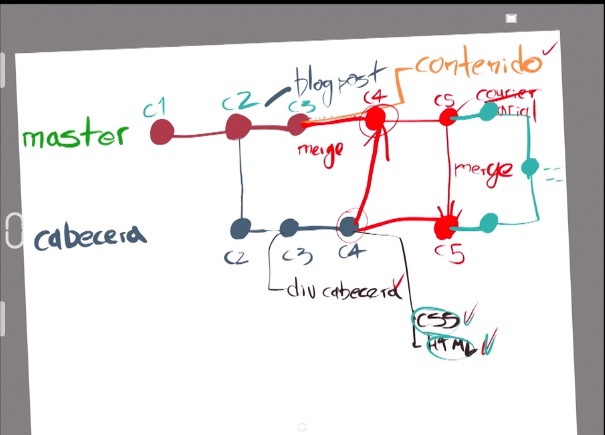 contenido
blogpost
c1 c2 c3 c4 c5 courier
arial
master
merge merge
cabecera
c2 c3 c4 c5
div cabecera
CSS
HTML